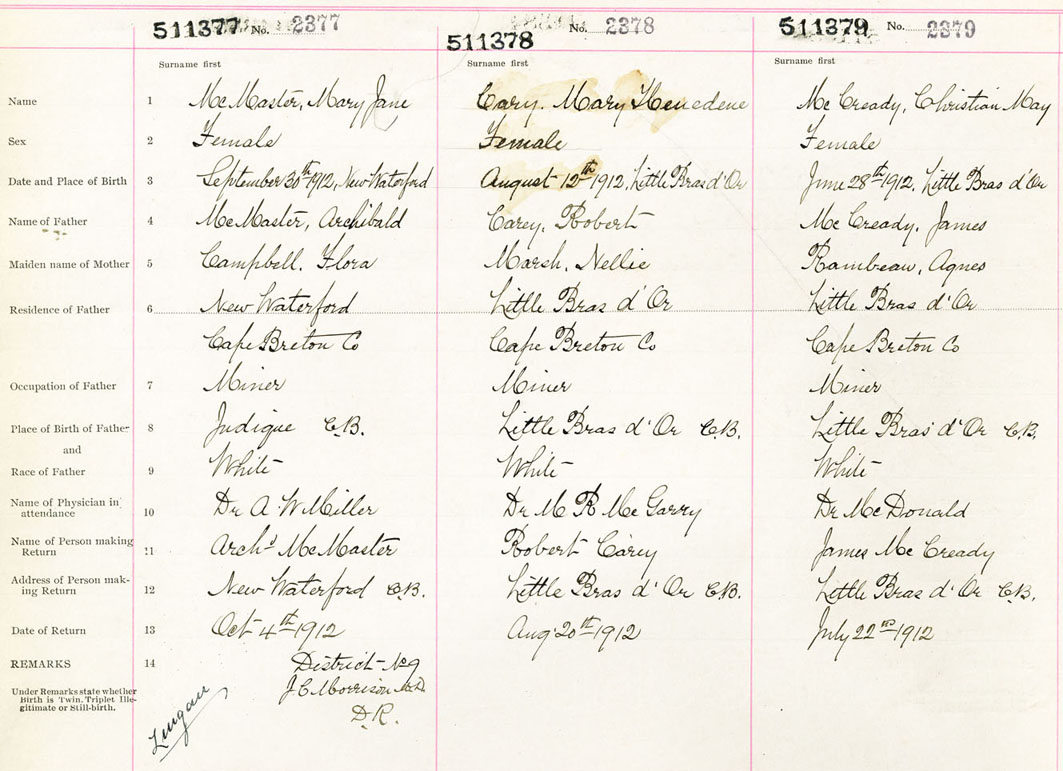 511377 No. 2377 511378 No. 2378 511379 No. 2379
Surname first Surname first Surname first
Name 1 McMaster, Mary Jane Cary. Mary Henedene Mc Cready, Christian May
Sex 2 Female Female Female
Date and Place of Birth 3 September 30th 1912, New Waterford August 12th 1912, Little Bras d'Or June 28th 1912, Little Bras d'Or
Name of Father 4 McMaster, Archibald Carey, Robert Mc Cready, James
Maiden name of Mother 5 Campbell, Flora Marsh, Nellie Rambeau, Agnes
Residence of Father 6 New Waterford Little Bras d'Or Little Bras d'Or
Cape Breton Co Cape Breton Co Cape Breton Co
Occupation of Father 7 Miner Miner Miner
Place of Birth of Father 8 Judique C.B. Little Bras d'Or C.B. Little Bras d'Or C.B.
and
Race of Father 9 White White White
Name of Physician in attendance 10 Dr A W Miller Dr M R Mc Garry Dr McDonald
Name of Person making Return 11 Archd McMaster Robert Carey James Mc Cready
Address of Person making Return 12 New Waterford C.B. Little Bras d'Or C.B. Little Bras d'Or C.B.
Date of Return 13 Oct 4th 1912 Aug 20th 1912 July 22nd 1912
REMARKS 14 District No 9
Under Remarks state whether Birth is Twin, Triplet Illegitimate or Still-birth. J C Morrison M.D.
D.R.
Lingan